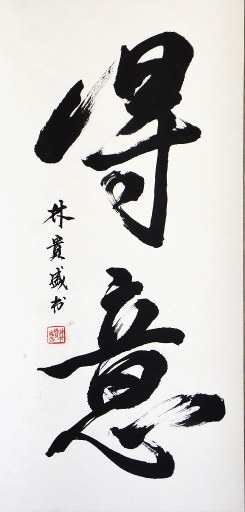 得意
林貴盛书